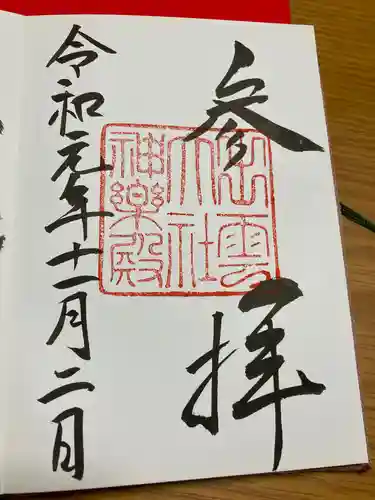 参拝
出雲大社
神楽殿
令和元年十一月二日